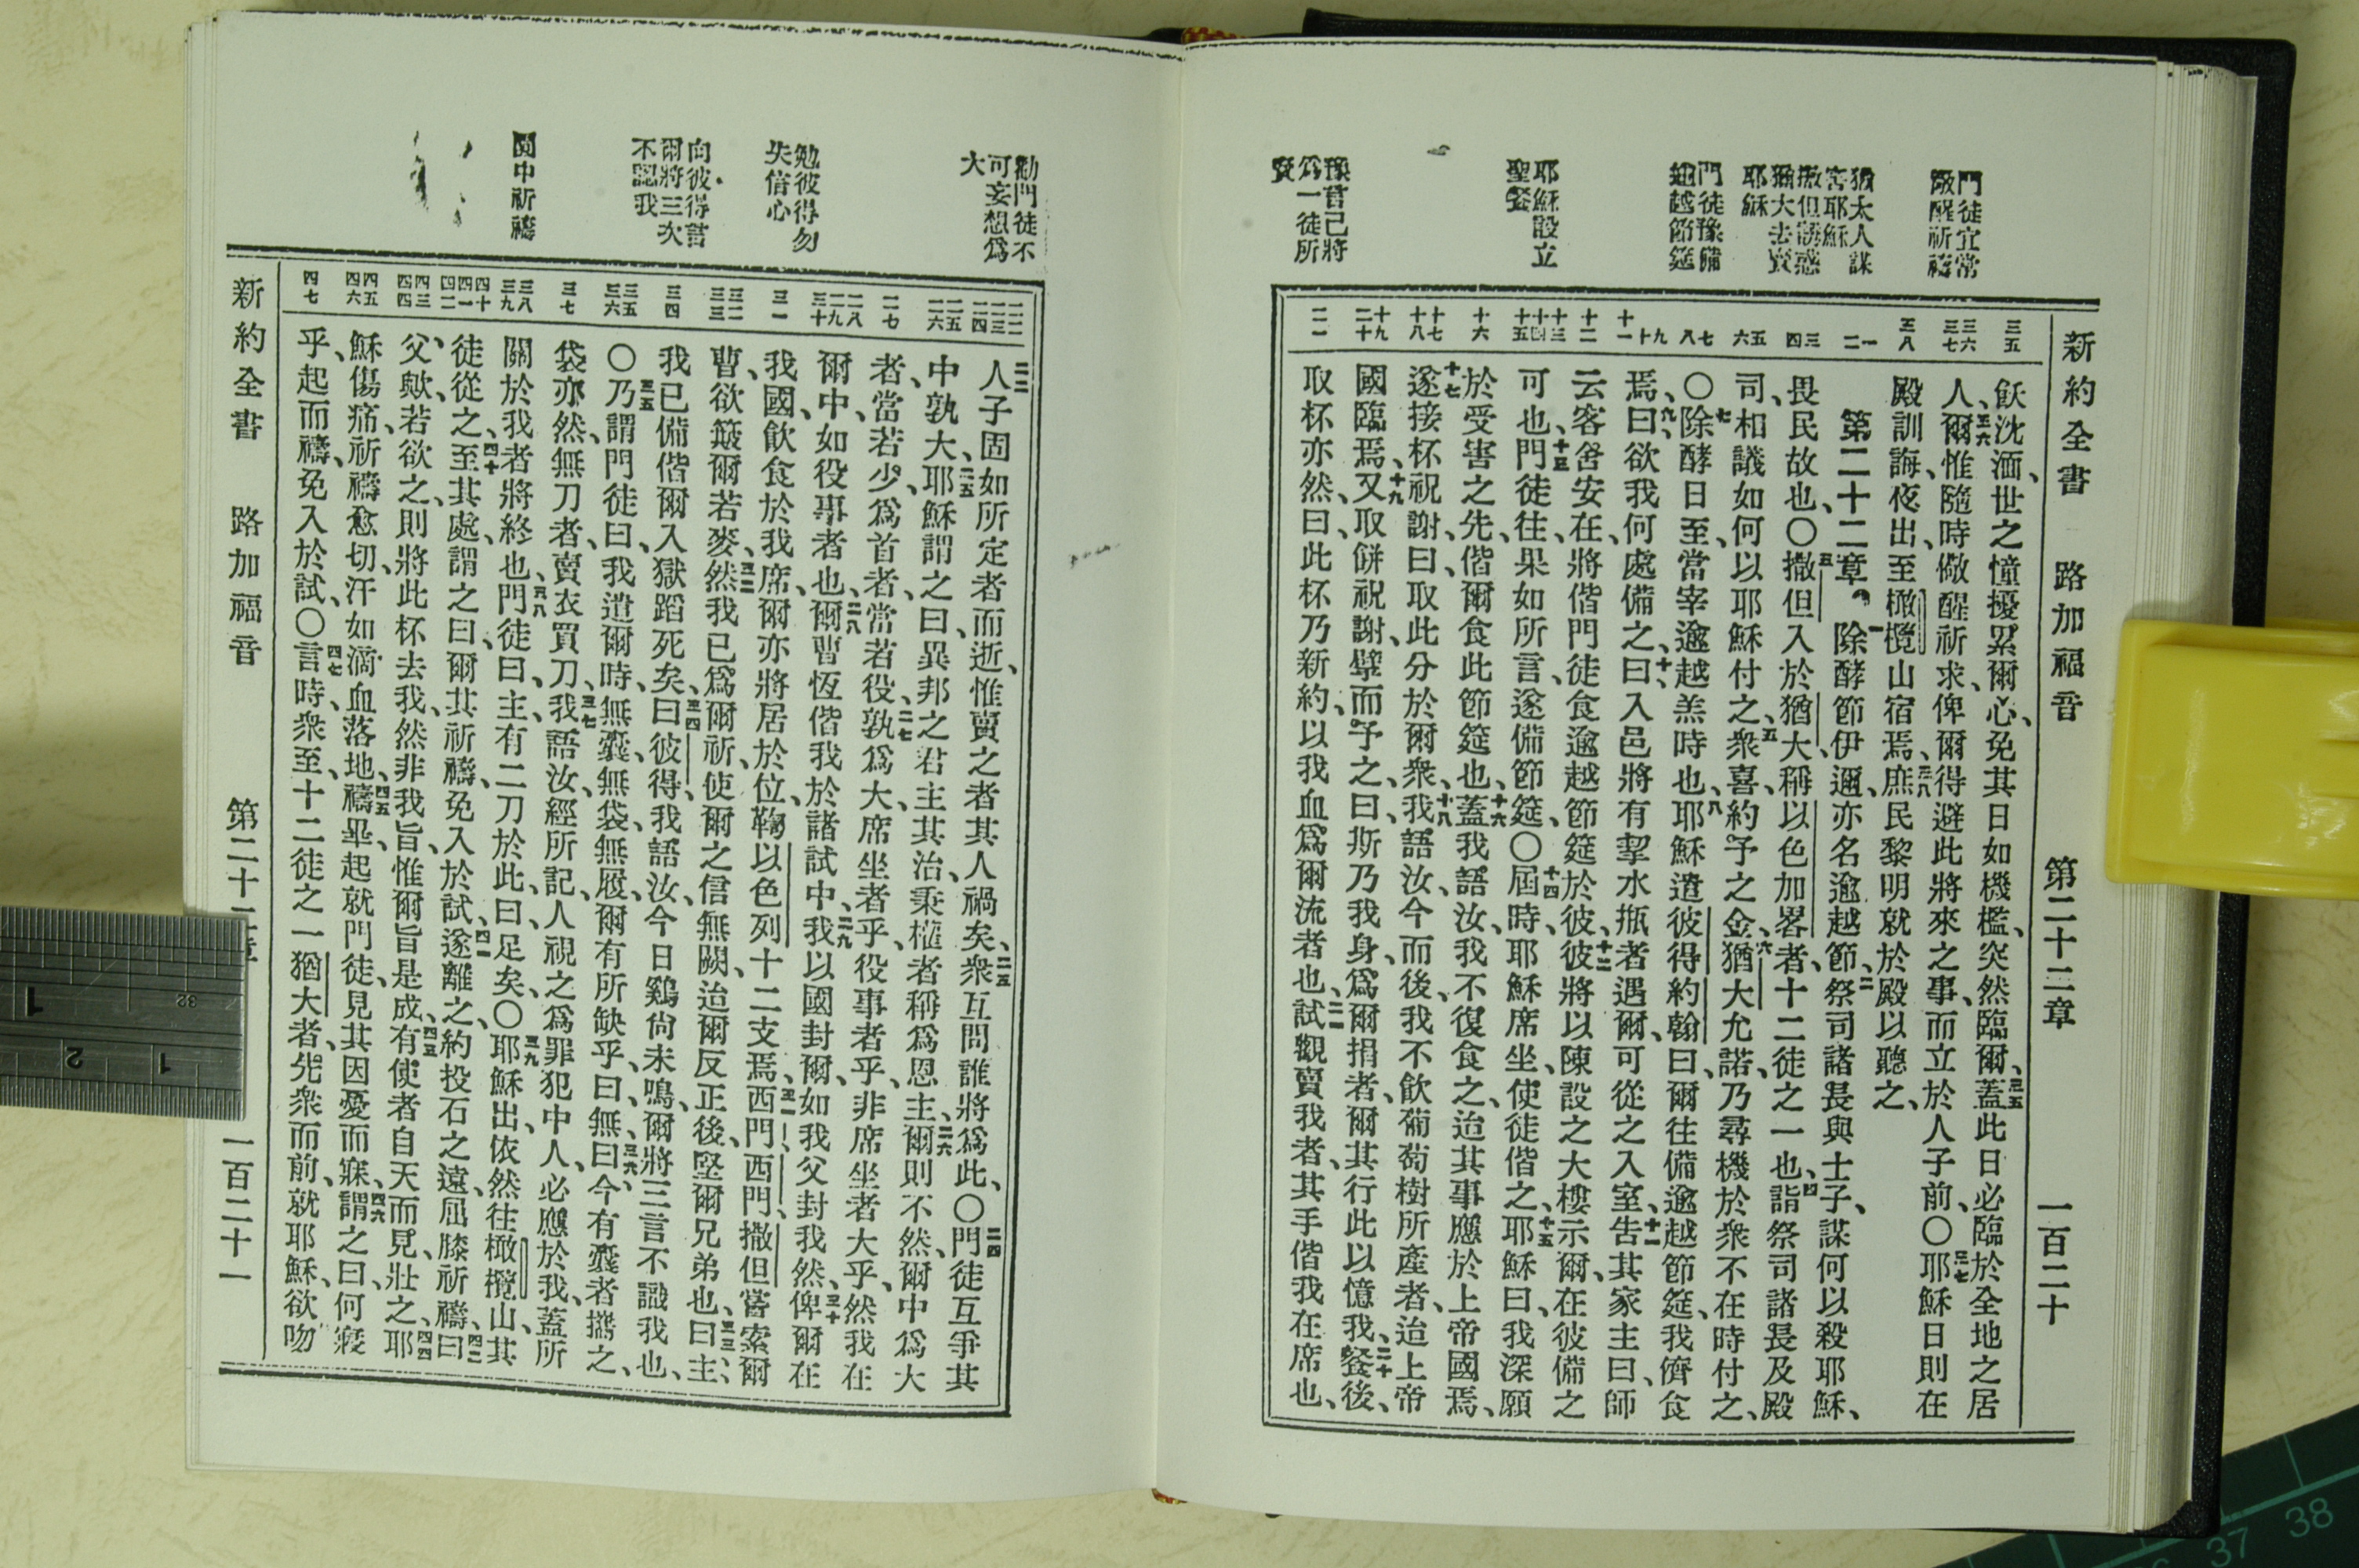 新約全書 路加福音 第二十二章 一百二十
門徒宜常
儆醒祈禱
猶太人謀
害耶穌
撒但誘惑
猶大去賣
耶穌
門徒豫備
逾越節筵
耶穌設立
聖餐
豫言己將
爲一徒所
賣
三五
三六
三七
三八
一
二
三
四
五
六
七
八
九
十
十一
十二
十三
十四
十五
十六
十七
十八
十九
二十
二一
飫沈湎、世之憧擾累爾心、免其日如機檻、突然臨爾、三五蓋此日必臨於全地之居
人、三六爾惟隨時儆醒祈求、俾爾得避此將來之事、而立於人子前、〇三七耶穌日則在
殿訓誨、夜出至橄欖山宿焉、三八庶民黎明就於殿以聽之、
第二十二章。一除酵節伊邇、亦名逾越節、二祭司諸長與士子、謀何以殺耶穌、
畏民故也、〇三撒但入於猶大、稱以色加畧者、十二徒之一也、四詣祭司諸長及殿
司、相議如何以耶穌付之、五衆喜、約予之金、六猶大允諾、乃尋機於衆不在時付之、
〇七除酵日至、當宰逾越羔時也、八耶穌遣彼得約翰曰、爾往備逾越節筵、我儕食
焉、九曰、欲我何處備之、十曰、入邑將有挈水瓶者遇爾、可從之入室、十一告其家主曰、師
云客舍安在、將偕門徒食逾越節筵於彼、十二彼將以陳設之大樓示爾、在彼備之
可也、十三門徒往、果如所言、遂備節筵、〇十四屆時、耶穌席坐、使徒偕之、十五耶穌曰、我深願
於受害之先、偕爾食此節筵也、十六蓋我語汝、我不復食之、迨其事應於上帝國焉、
十七遂接杯祝謝、曰、取此分於爾衆、十八我語汝、今而後、我不飲葡萄樹所產者、迨上帝
國臨焉、十九又取餅祝謝、擘而予之、曰、斯乃我身、爲爾捐者、爾其行此以憶我、二十餐後、
取杯亦然、曰、此杯乃新約、以我血爲爾流者也、二一試觀賣我者、其手偕我在席也、
勸門徒不
可妄想爲
大
勉彼得勿
失信心
向彼得言
爾將三次
不認我
園中祈禱
二二
二三
二四
二五
二六
二七
二八
二九
三十
三一
三二
三三
三四
三五
三六
三七
三八
三九
四十
四一
四二
四三
四四
四五
四六
四七
二二人子固如所定者而逝、惟賣之者其人禍矣、二三衆互問誰將爲此、〇二四門徒互爭其
中孰大、二五耶穌謂之曰、異邦之君主其治、秉權者稱爲恩主、二六爾則不然、爾中爲大
者、當若少、爲首者、當若役、二七孰爲大、席坐者乎、役事者乎、非席坐者大乎、然我在
爾中、如役事者也、二八爾曹恆偕我於諸試中、二九我以國封爾、如我父封我然、三十俾爾在
我國、飲食於我席、爾亦將居於位、鞫以色列十二支焉、三一西門、西門、撒但嘗索爾
曹、欲簸爾若麥、三二然我已爲爾祈、使爾之信無闕、迨爾反正後、堅爾兄弟也、三三曰、主、
我已備偕爾入獄蹈死矣、三四曰、彼得、我語汝、今日鷄尚未鳴、爾將三言不識我也、
〇三五乃謂門徒曰、我遣爾時、無囊、無袋、無履、爾有所缺乎、曰、無、三六曰、今有囊者攜之、
袋亦然、無刀者、賣衣買刀、三七我語汝、經所記、人視之爲罪犯中人、必應於我、蓋所
關於我者將終也、三八門徒曰、主、有二刀於此、曰、足矣、〇三九耶穌出、依然往橄欖山、其
徒從之、四十至其處、謂之曰、爾其祈禱、免入於試、四一遂離之、約投石之遠、屈膝祈禱、四二曰、
父歟、若欲之、則將此杯去我、然非我旨、惟爾旨是成、四三有使者自天而見、壯之、四四耶
穌傷痛、祈禱愈切、汗如滴血落地、四五禱畢、起就門徒、見其因憂而寐、四六謂之曰、何寢
乎、起而禱、免入於試、〇四七言時、衆至、十二徒之一猶大者、先衆而前、就耶穌、欲吻
新約全書 路加福音 第二十二章 一百二十一
1
2
1
32
37
38